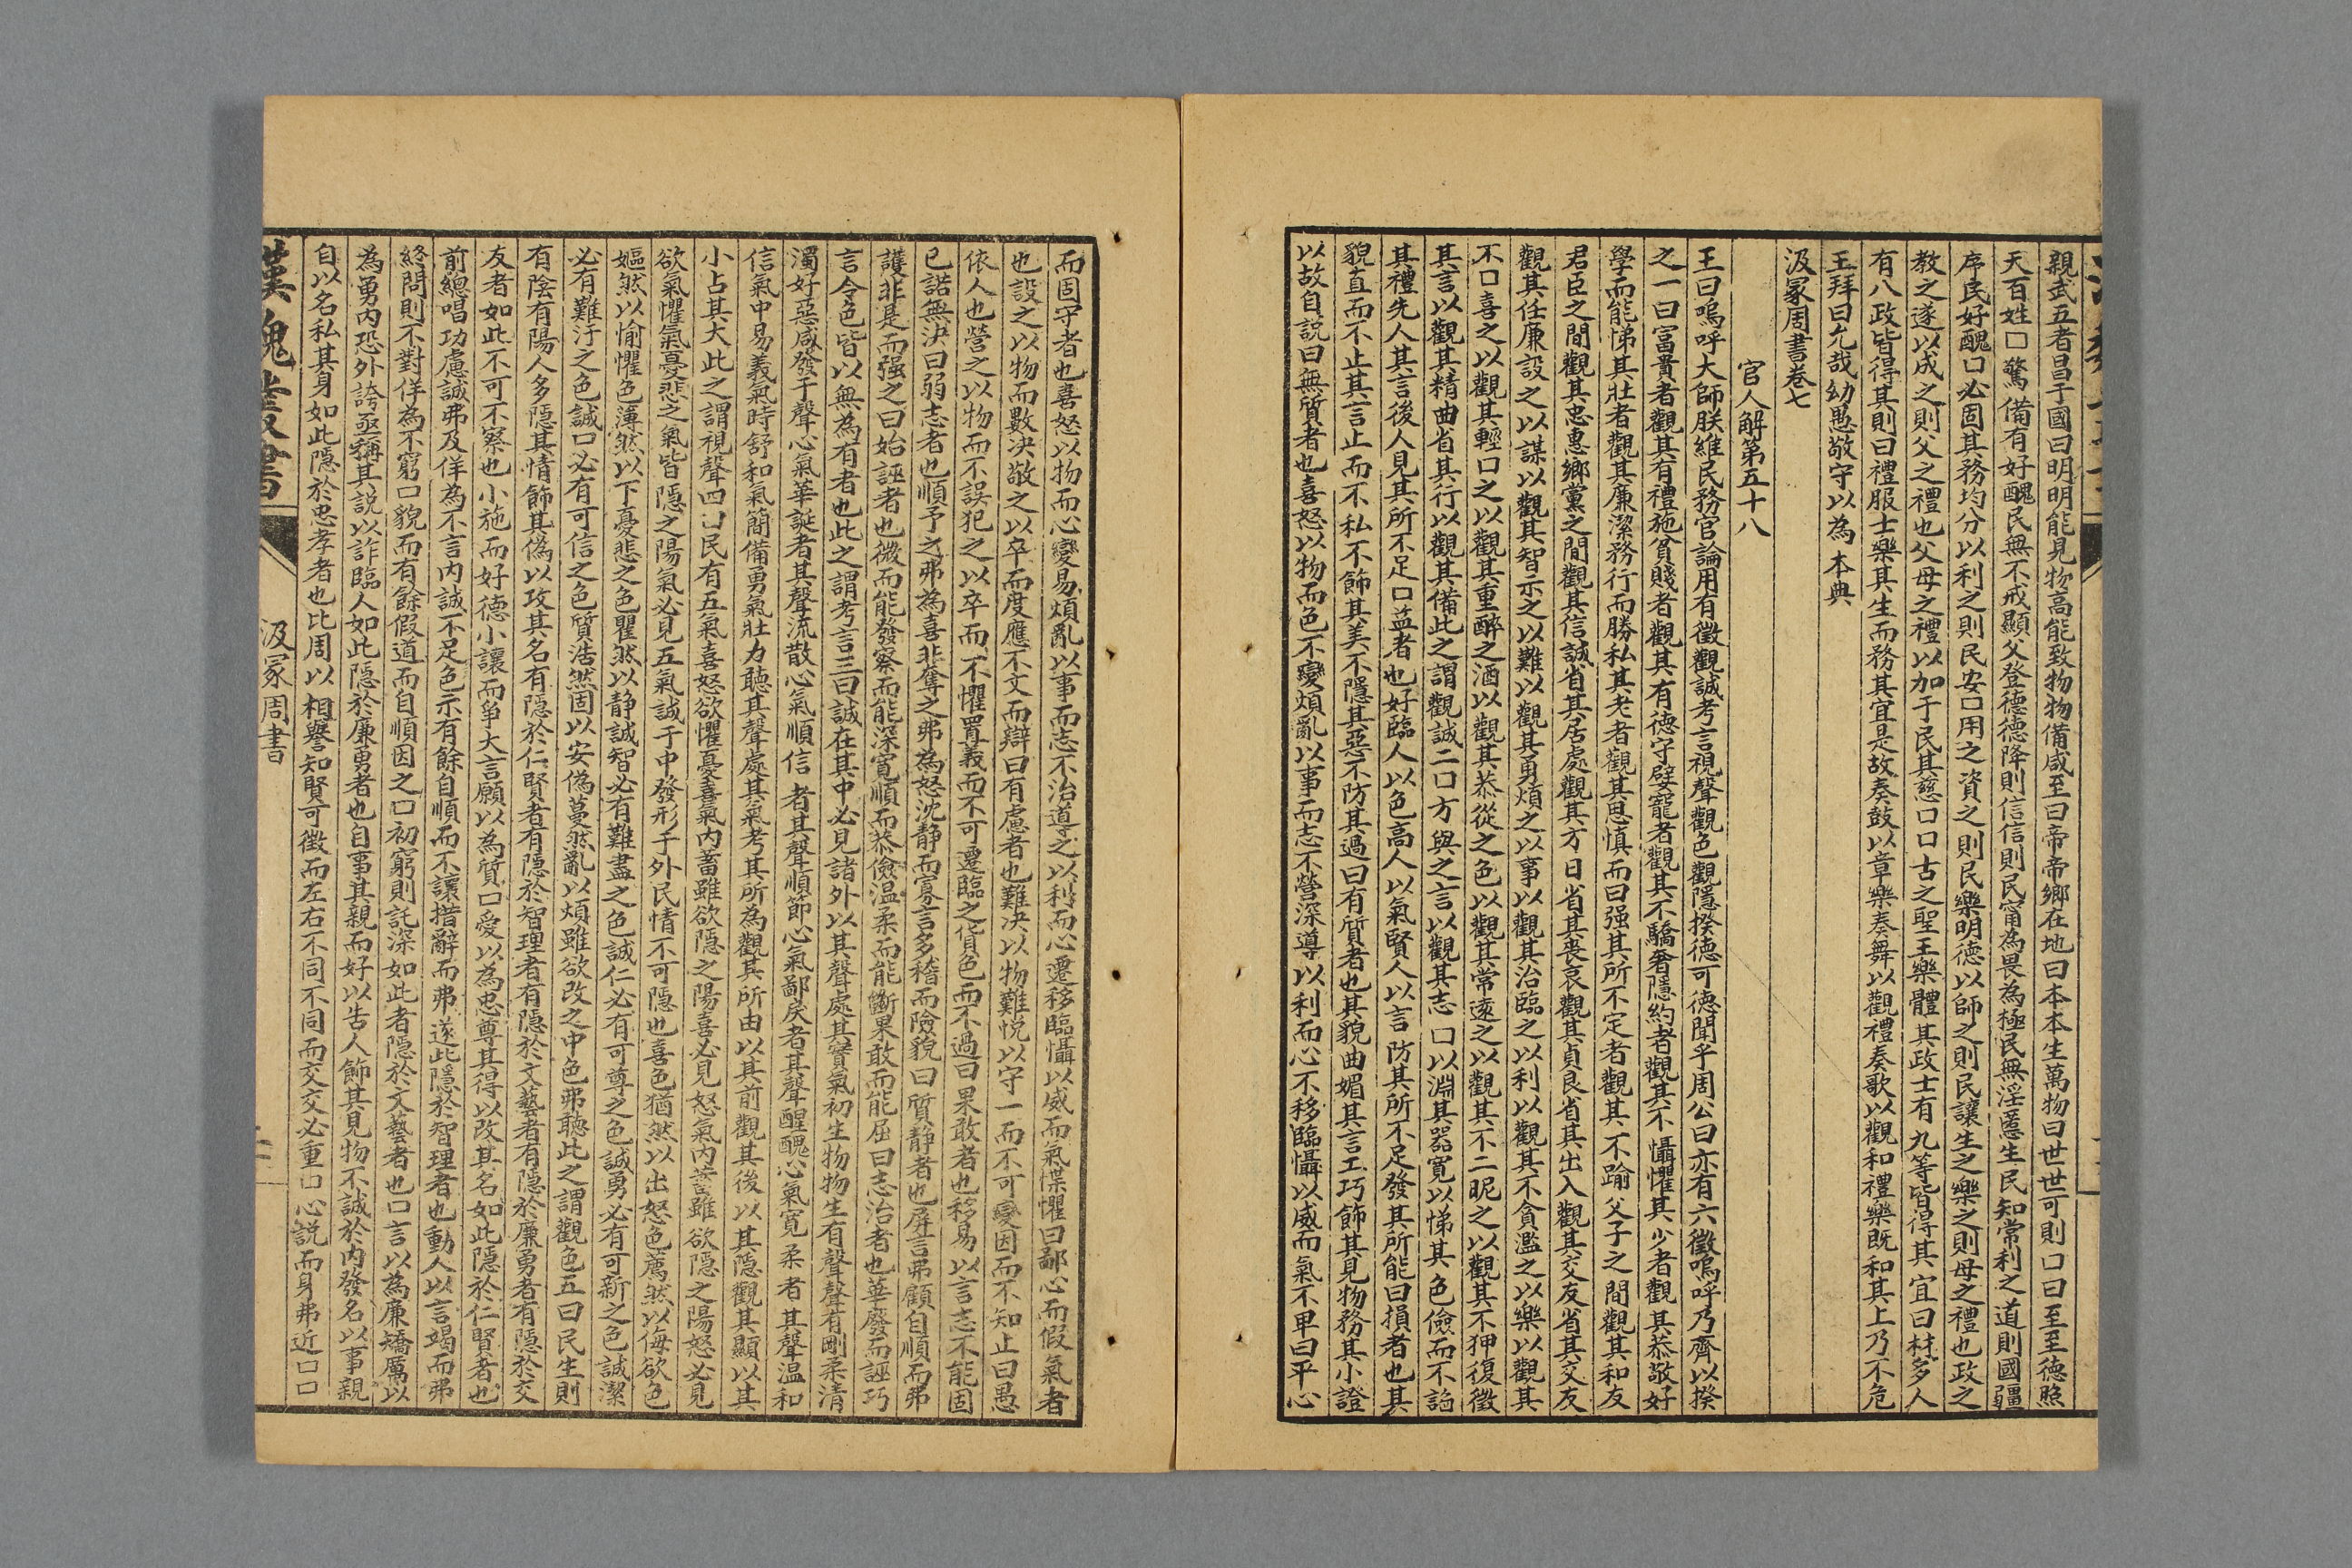 親武五者昌于國曰明明能見物高能致物物備咸至曰帝帝鄉在地曰本本生萬物曰世世可則口曰至至德照
天百姓口驚備有好醜民無不戒顯父登德德降則信信則民甯為畏為極民無淫慝生民知常利之道則國疆
序民好醜口必固其務均分以利之則民安口用之資之則民樂明德以師之則民讓生之樂之則母之禮也政之
教之遂以成之則父之禮也父母之禮以加于民其慈口口古之聖王樂體其政士有九等皆得其宜曰材多人
有八政皆得其則曰禮服士樂其生而務其宜是故奏鼓以章樂奏舞以觀禮奏歌以觀和禮樂既和其上乃不危
王拜曰允哉幼愚敬守以為本典
汲冢周書卷七
官人解第五十八
王曰嗚呼大師朕維民務官論用有徵觀誠考言視聲觀色觀隱揆德可德聞乎周公曰亦有六徵嗚呼乃齊以揆
之一曰富貴者觀其有禮施貧賤者觀其有德守嬖寵者觀其不驕奢隱約者觀其不懾懼其少者觀其恭敬好
學而能悌其壯者觀其廉潔務行而勝私其老者觀其思慎而曰强其所不定者觀其不踰父子之間觀其和友
君臣之間觀其忠惠鄉黨之間觀其信誠省其居處觀其方曰省其喪哀觀其貞良省其出入觀其交友省其交友
觀其任廉設之以謀以觀其智示之以難以觀其勇煩之以事以觀其治臨之以利以觀其不貪濫之以樂以觀其
不口喜之以觀其輕口之以觀其重醉之酒以觀其恭從之色以觀其常遠之以觀其不二昵之以觀其不狎復徵
其言以觀其精曲省其行以觀其備此之謂觀誠二口方與之言以觀其志口以淵其器寬以悌其色儉而不諂
其禮先人其言後人見其所不足口益者也好臨人以色高人以氣賢人以言防其所不足發其所能曰損者也其
貌直而不止其言止而不私不飾其美不隱其惡不防其過曰有質者也其貌曲媚其言工巧飾其見物務其小證
以故自説曰無質者也喜怒以物而色不變煩亂以事而志不營深導以利而心不移臨懾以威而氣不卑曰平心
而固守者也喜怒以物而心變易煩亂以事而志不治導之以利而心遷移臨懾以威而氣㥈懼曰鄙心而假氣者
也設之以物而數決敬之以卒而度應不文而辯曰有慮者也難決以物難悅以守一而不可變因而不知止曰愚
依人也營之以物而不誤犯之以卒而不懼置義而不可遷臨之貨色而不過曰果敢者也移易以言志不能固
已諾無決曰弱志者也順予之弗為喜非奪之弗為怒沈靜而寡言多稽而險貌曰質靜者也屏言弗顧自順而弗
護非是而强之曰始誣者也微而能發察而能深寬順而恭儉溫柔而能斷果敢而能屈曰志治者也華廢而誣巧
言令色皆以無為有者也此之謂考言三曰誠在其中必見諸外以其聲處其實氣初生物物生有聲聲有剛柔清
濁好惡咸發于聲心氣華誕者其聲流散心氣順信者其聲順節心氣鄙戾者其聲醒醜心氣寬柔者其聲溫和
信氣中易義氣時舒和氣簡備勇氣壯力聽其聲處其氣考其所為觀其所由以其前觀其後以其隱觀其顯以其
小占其大此之謂視聲四曰民有五氣喜怒欲懼憂喜氣內蓄雖欲隱之陽喜必見怒氣內蓄雖欲隱之陽怒必見
欲氣懼氣憂悲之氣皆隱之陽氣必見五氣誠于中發形于外民情不可隱也喜色猶然以出怒色薦然以侮欲色
嫗然以愉懼色薄然以下憂悲之色瞿然以静誠智必有難盡之色誠仁必有可尊之色誠勇必有可新之色誠潔
必有難汙之色誠口必有可信之色質浩然固以安偽蔓然亂以煩雖欲改之中色弗聽此之謂觀色五曰民生則
有陰有陽人多隱其情飾其偽以攻其名有隱於仁賢者有隱於智理者有隱於文藝者有隱於廉勇者有隱於交
友者如此不可不察也小施而好德小讓而爭大言願以為質口愛以為忠尊其得以改其名如此隱於仁賢者也
前總唱功慮誠弗及佯為不言內誠不足色示有餘自順而不讓措辭而弗遂此隱於智理者也動人以言竭而弗
終問則不對佯為不窮口貌而有餘假道而自順因之口初窮則託深如此者隱於文藝者也口言以為廉矯厲以
為勇內恐外誇亟稱其説以詐臨人如此隱於廉勇者也自事其親而好以告人飾其見物不誠於內發名以事親
自以名私其身如此隱於忠孝者也比周以相譽知賢可徵而左右不同不同而交交必重口心説而身弗近口口
漢魏叢書
汲冢周書